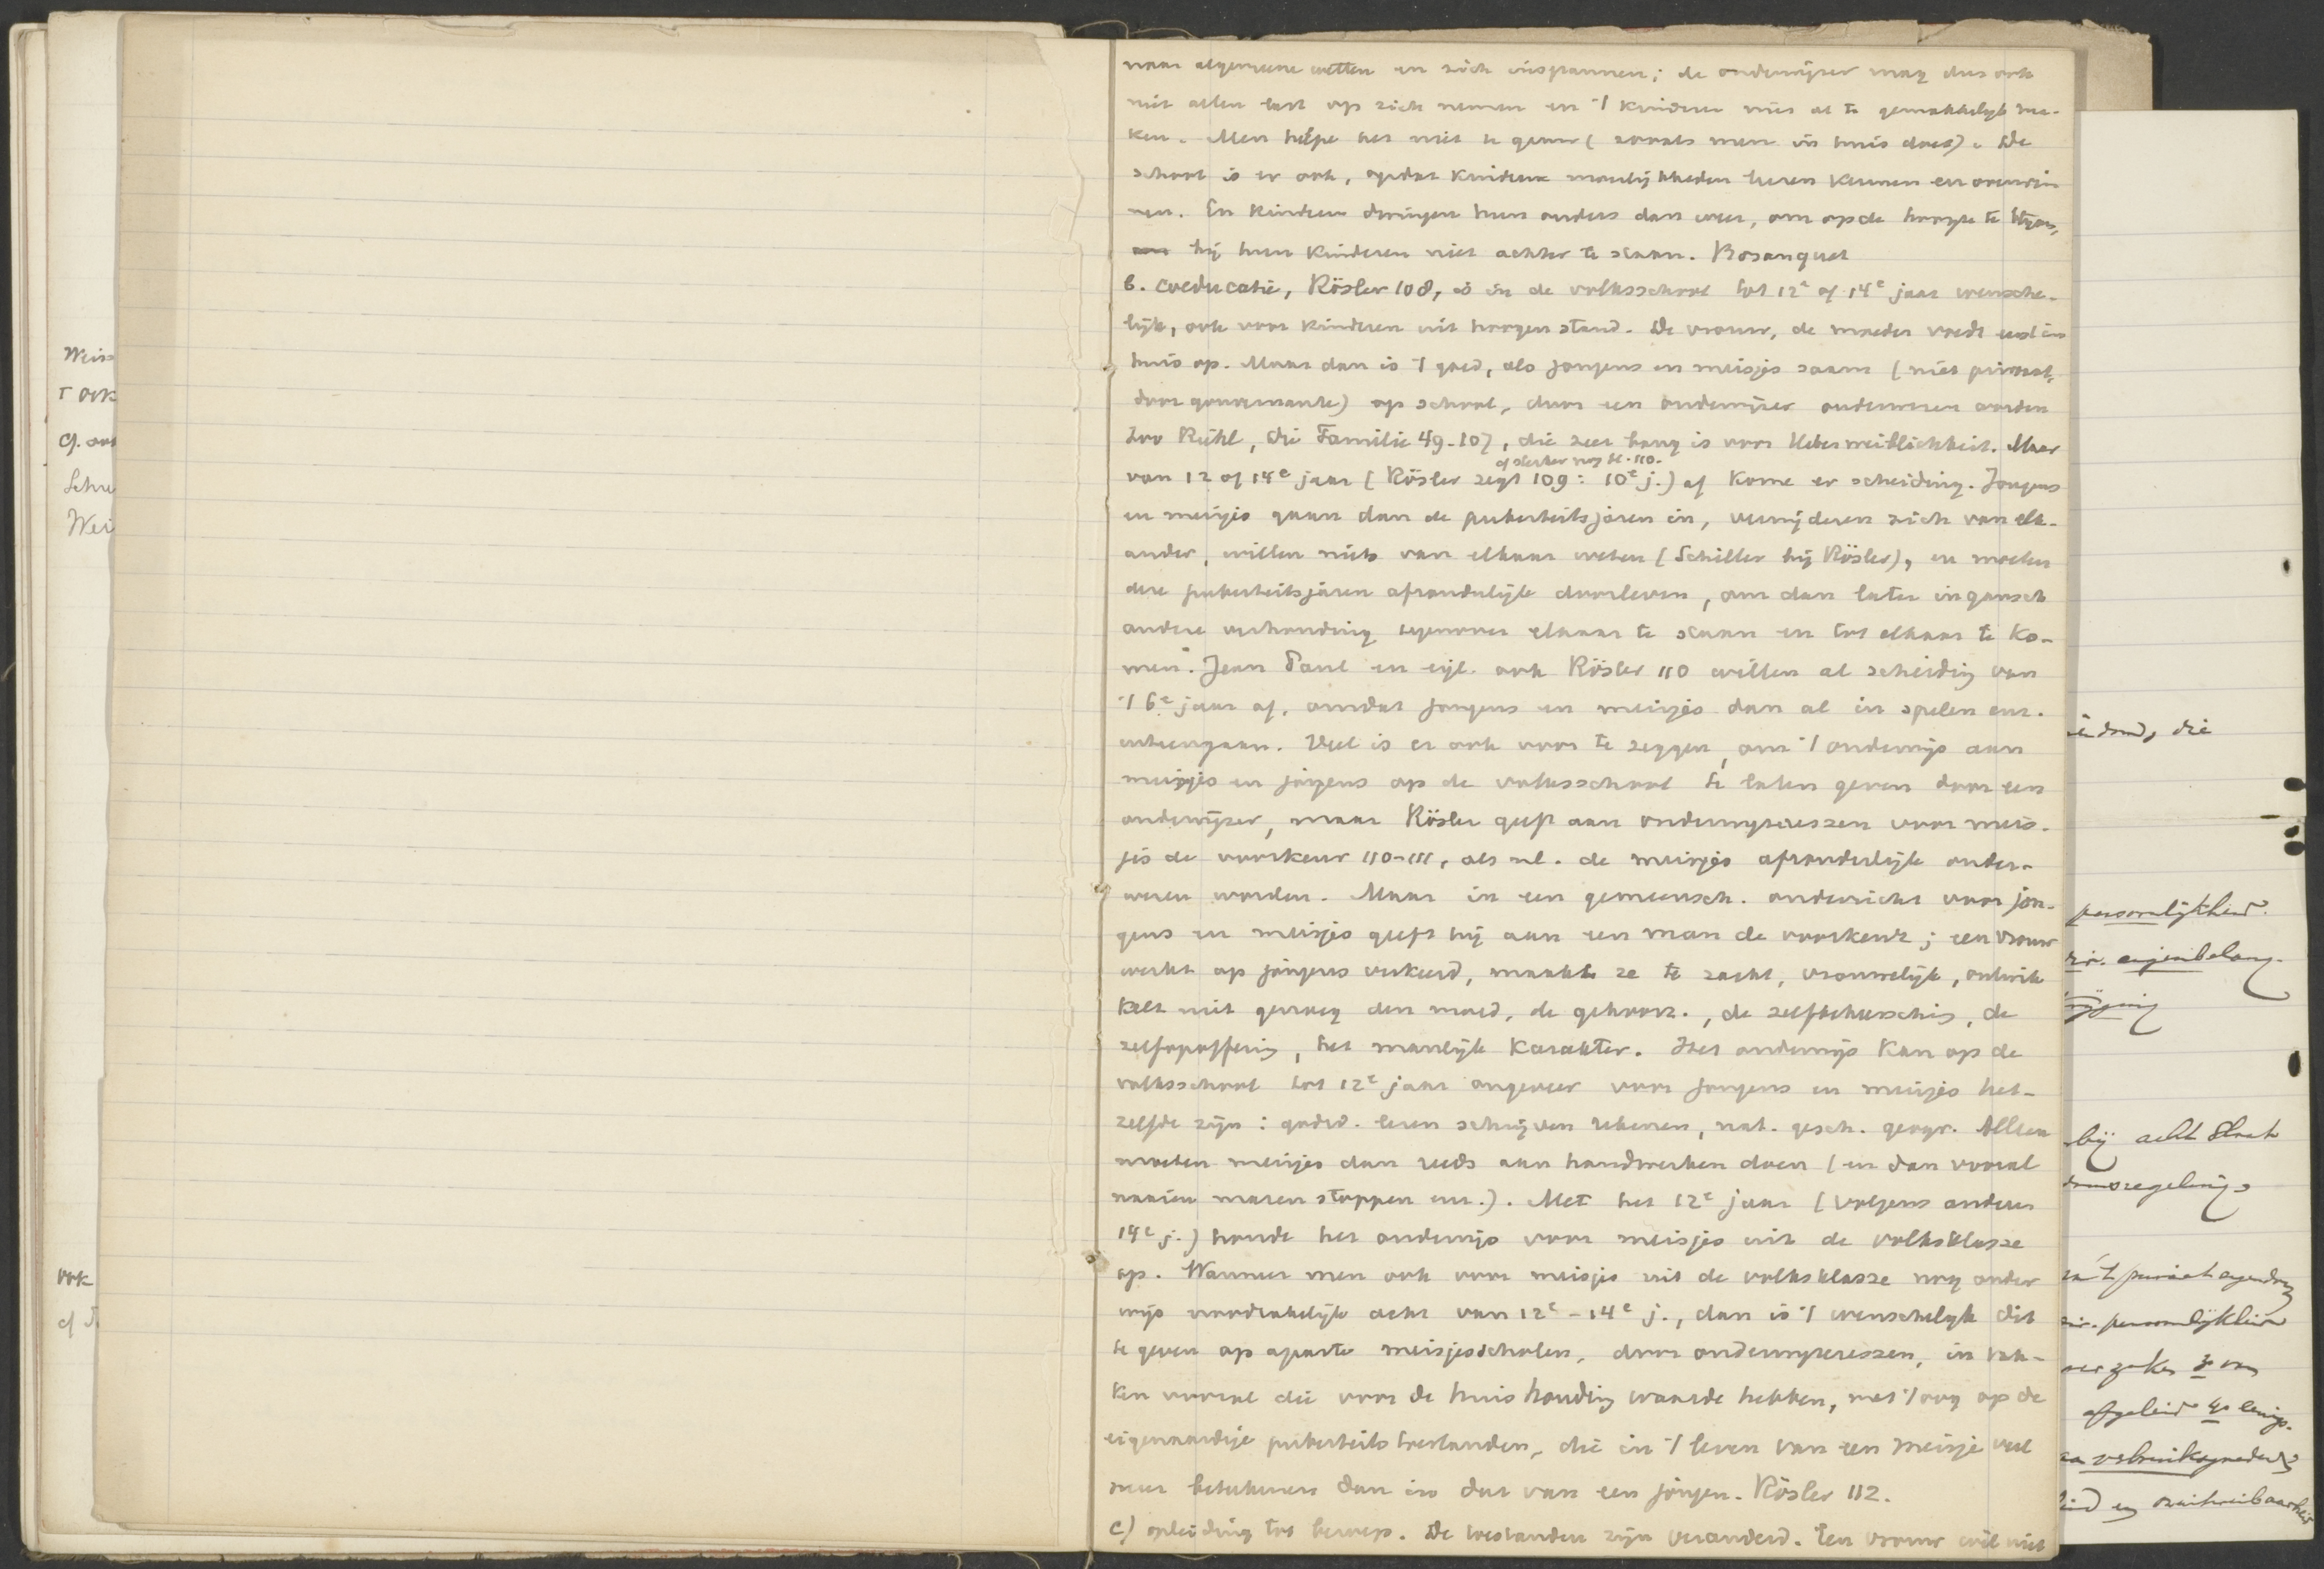 naar algemeene wetten en zich inspannen; de onderwijzer mag dus ook
niet allen last op zich nemen en 't kinderen niet al te gemakkelijk ma-
ken. Men helpe het niet te gauw (zooals men in huis doet). De
school is er ook, opdat kinderen moeilijkheden leeren kennen en overwin
nen. En kinderen dwingen hun ouders dan weer, om op de hoogte te blijven,
bij hun kinderen niet achter te staan. Bosanquet
b. coeducatie, Rösler 108, is in de volksschool tot 12e of 14e jaar wensche-
lijk, ook voor kinderen uit hoogen stand. De vrouw, de moeder voedt
huis op. Maar dan is 't goed, als jongens en meisjes saam (niet privaat,
door gouvernante) op school, door een onderwijzer onderwezen worden
Zoo Riehl, die Familie 49-107, die zeer bang is voor Ueberweiblichkeit. Maar
of sterker nog bl. 110.
van 12 of 14e jaar (Rösler zegt 109: 10e j.) af kome er scheiding. Jongens
en meisjes gaan dan de puberteitsjaren in, verwijderen zich van elk-
ander, willen niets van elkaar weten (Schiller bij Rösler), en moeten
deze puberteitsjaren afzonderlijk doorleven, om dan later in gansch
andere verhouding tegenover elkaar te staan en tot elkaar te ko-
men. Jean Paul en eigl. ook Rösler 110 willen al scheiding van
't 6e jaar af, omdat jongens en meisjes dan al in spelen enz.
uiteengaan. Veel is er ook voor te zeggen, om 't onderwijs aan
meisjes en jongens op de volksschool te laten geven door een
onderwijzer, maar Rösler geeft aan onderwijzeressen voor meis-
jes de voorkeur 110-111, als nl. de meisjes afzonderlijk onder-
wezen worden. Maar in een gemeensch. onderricht voor jon-
gens en meisjes geeft hij aan een man de voorkeur; een vrouw
werkt op jongens verkeerd, maakt ze te zacht, vrouwelijk, ontwik
kelt niet genoeg den moed, de gehoorz., de zelfbeheersching, de
zelfopoffering, het manlijk karakter. Het onderwijs kan op de
volksschool tot 12e jaar ongeveer voor jongens en meisjes het-
zelfde zijn: godsd. lezen schrijven rekenen, nat. gesch. geogr. Alleen
moeten meisjes dan reeds aan handwerken doen (en dan vooral
naaien mazen stoppen enz.). Met het 12e jaar (volgens anderen
14e j.) houde het onderwijs voor meisjes uit de volksklasse
op. Wanneer men ook voor meisjes uit de volksklasse nog onder
wijs noodzakelijk acht van 12e-14e j., dan is 't wenschelijk dit
te geven op aparte meisjesscholen, door onderwijzeressen, in vak-
ken vooral die voor de huishouding waarde hebben, met 't oog op de
eigenaardige puberteitstoestanden, die in 't leven van een meisje veel
meer beteekenen dan in dat van een jongen. Rösler 112.
c) opleiding tot beroep. De toestanden zijn veranderd. Een vrouw wil niet
Weiss
ook
cf. oo
Schre
Wei
ook
cf
die
persoonlijkheid.
eigenbelang.
bij
regeling
persoonlijkheid
afgeleid